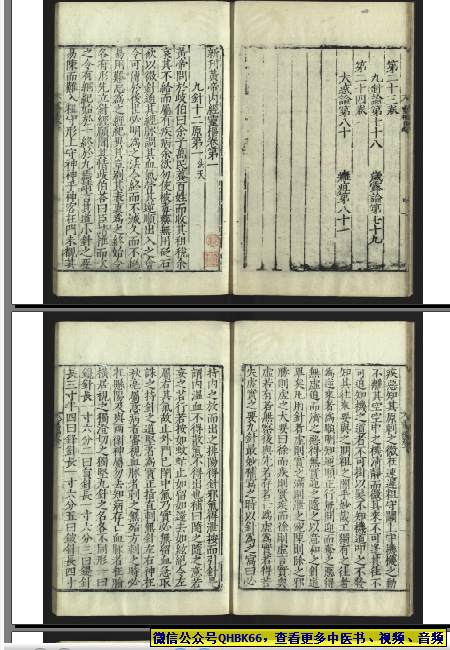 第二十三卷
九針論第七十八 歲露論第七十九
第二十四卷
大惑論第八十 癰疽第八十一
新刊黃帝內經靈樞卷第一
九針十二原第一 法天
黃帝問於歧伯曰余子萬民養百姓而收其租稅余
哀其不給而屬有疾病余欲勿使被毒藥無用砭石
欲以微針通其經脉調其血氣營其逆順出入之會
令可傳於後世必明為之法令終而不滅久而不絕
易用難忘為之經紀異其章別其表裏為之終始令
各有形先立針經願聞其情歧伯荅曰臣請推而次
之令有綱紀始於一終於九焉請言其道小針之要
易陳而難入粗守形上守神神乎神客在門未覩其
疾惡知其原刺之微在速遲粗守關上守機機之動
不離其空空中之機清靜而微其來不可逢其往不
可追知機之道者不可掛以髮不知機道叩之不發
知其往來要與之期粗之闇乎妙哉工獨有之往者
為逆來者為順明知逆順正行無問逆而奪之惡得
無虛追而濟之惡得無實迎之隨之以意和之針道
畢矣凡用針者虛則實之滿則泄之宛陳則除之邪
勝則虛之大要曰徐而疾則實疾而徐則虛言實與
虛若有若無察後與先若存若亡為虛與實若得若
失虛實之要九針最妙補瀉之時以針為之瀉曰必
持內之放而出之排陽得針邪氣得泄按而引針是
謂內溫血不得散氣不得出也補曰隨之隨之意若
妄之若行若按如蚊虻止如留如還去如絃絕令左
屬右其氣故止外門已閉中氣乃實必無留血急取
誅之持針之道堅者為寶正指直刺無針左右神在
秋毫屬意病者審視血脉者刺之無殆方刺之時必
在懸陽及與兩衛神屬勿去知病存亡血脉者在腧
橫居視之獨澄切之獨堅九針之名各不同形一曰
鑱針長一寸六分二曰員針長一寸六分三曰鍉針
長三寸半四曰鋒針長一寸六分五曰鈹針長四寸
微信公众号QHBK66，查看更多中医书、视频、音频